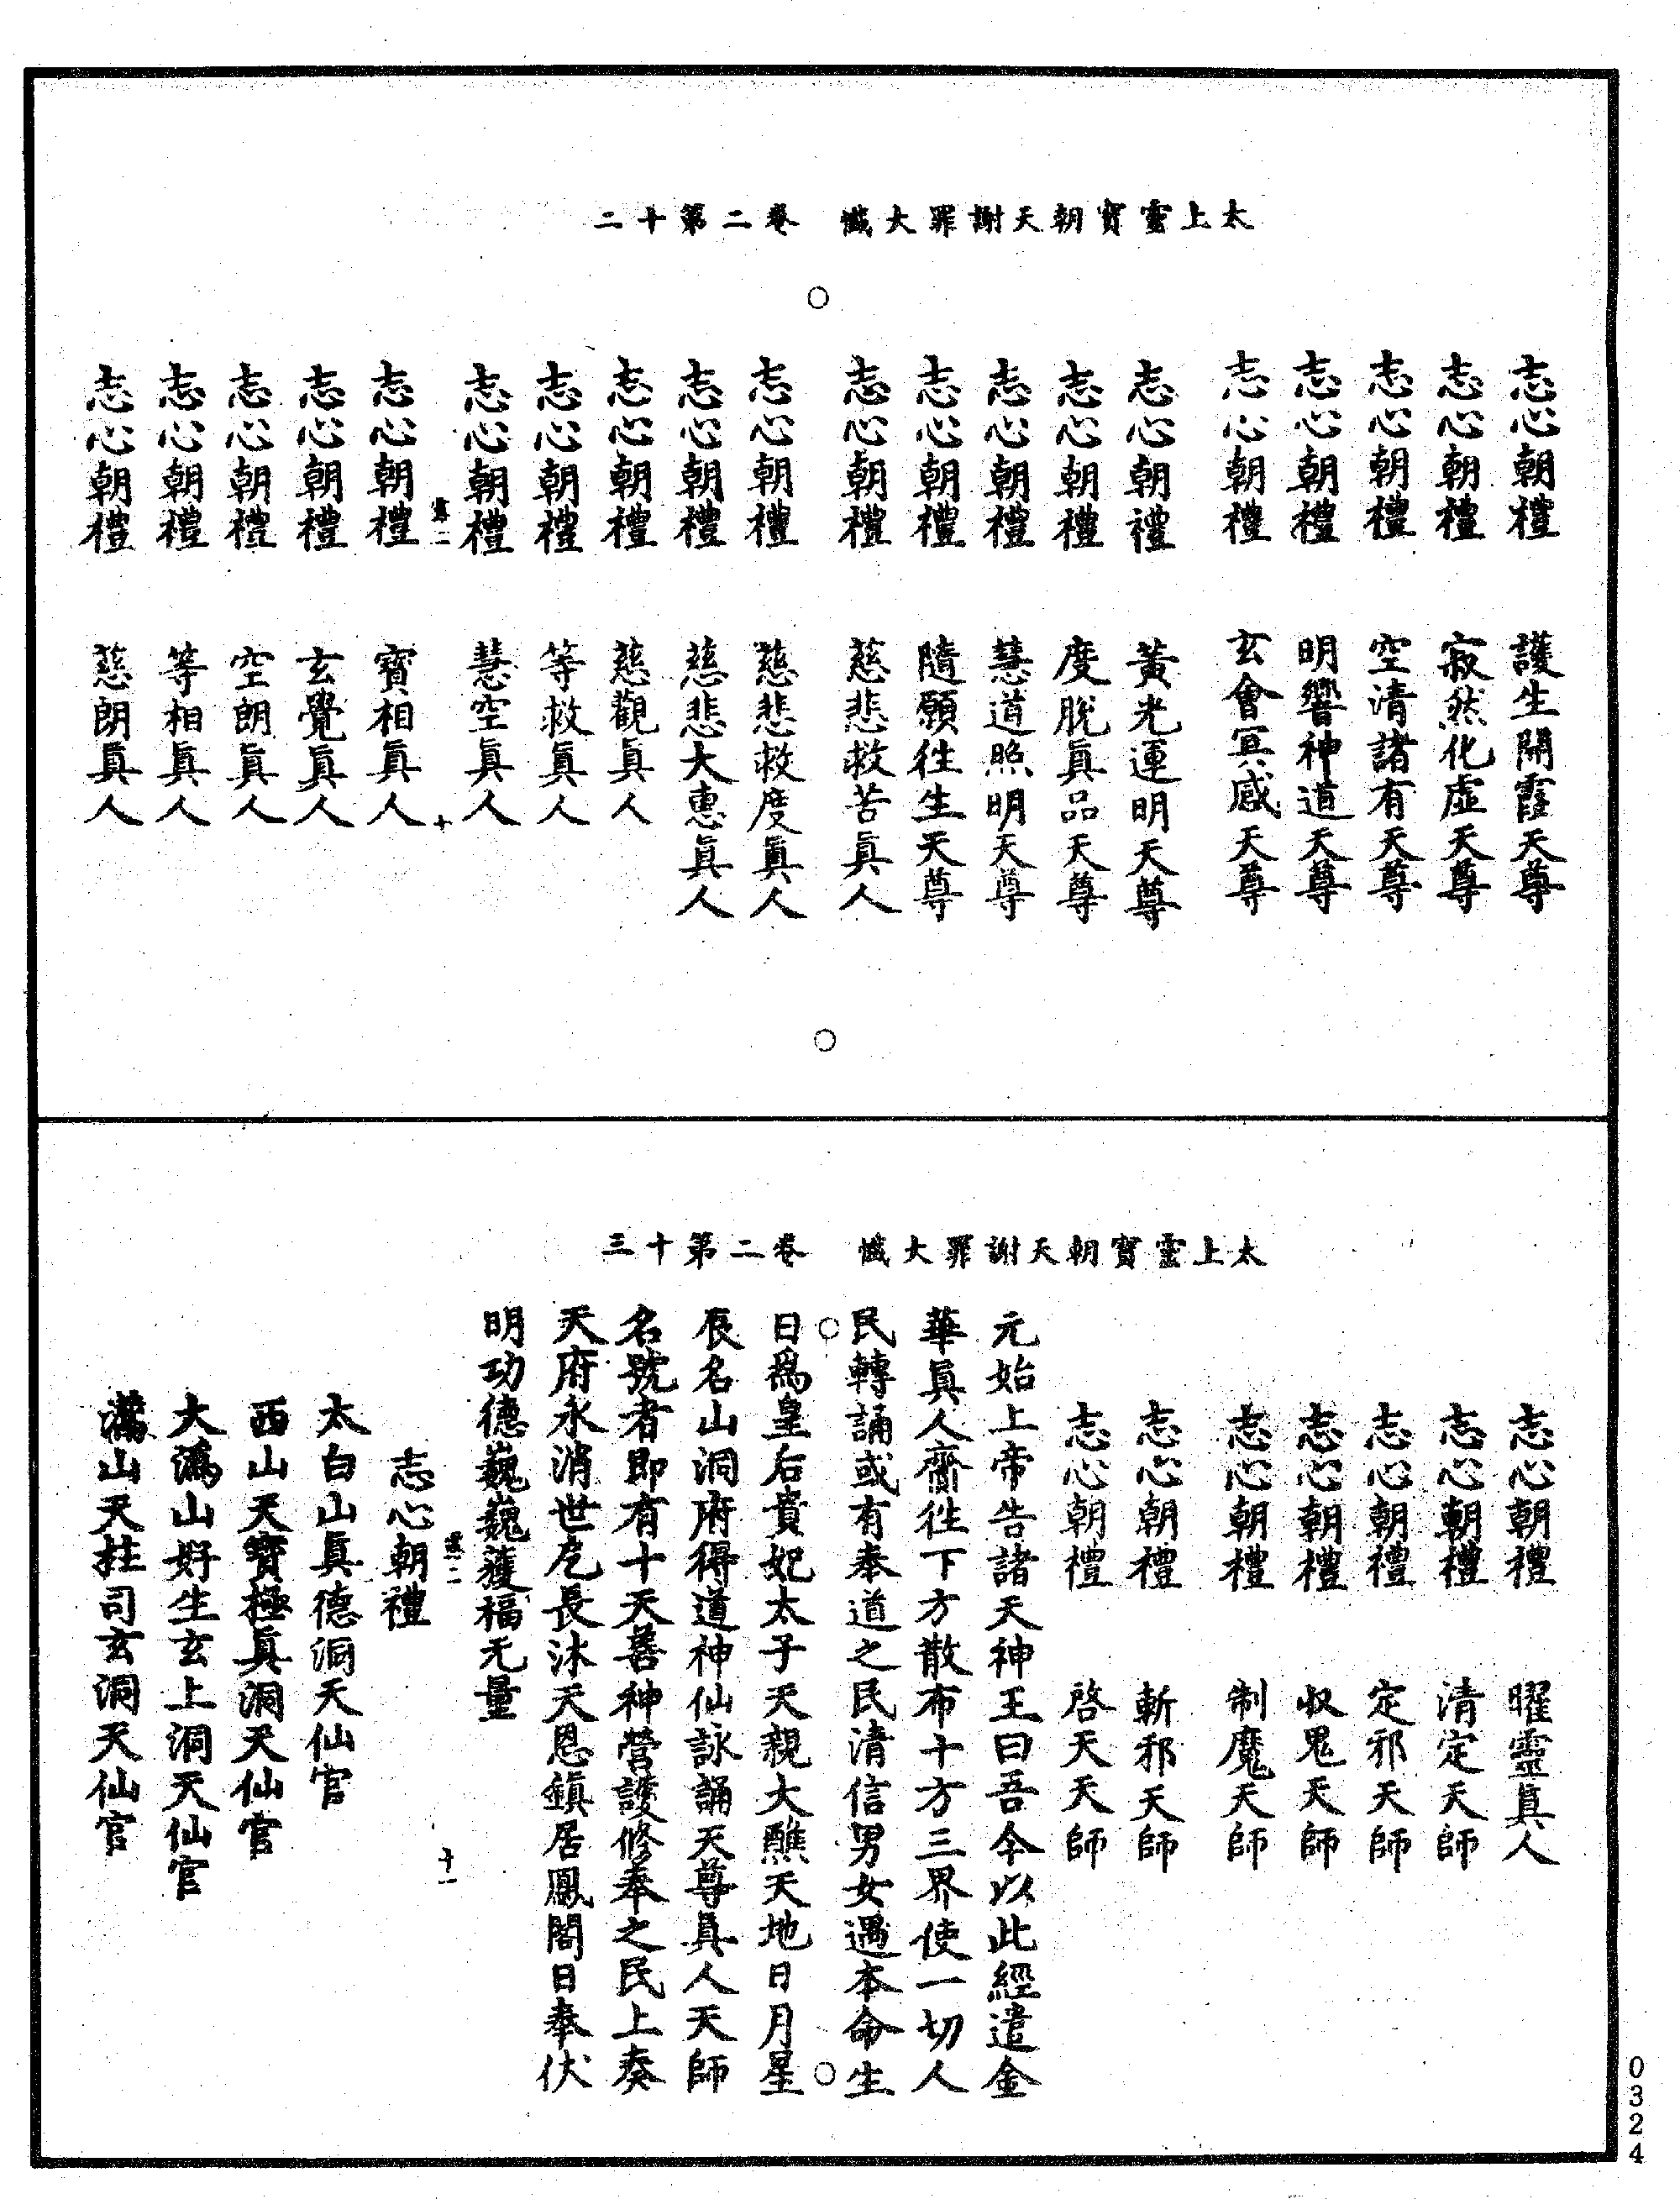 太上靈寶朝天謝罪大懺　卷二第十二
志心朝禮　護生開霞天尊
志心朝禮　寂然化虛天尊
志心朝禮　空清諸有天尊
志心朝禮　明響神道天尊
志心朝禮　玄會冥感天尊
志心朝禮　黃光運明天尊
志心朝禮　度脫眞品天尊
志心朝禮　慧道照明天尊
志心朝禮　隨願往生天尊
志心朝禮　慈悲救苦眞人
志心朝禮　慈悲救度眞人
志心朝禮　慈悲大惠眞人
志心朝禮　慈觀眞人
志心朝禮　等救眞人
志心朝禮　慧空眞人
二　十
志心朝禮　寶相眞人
志心朝禮　玄覺眞人
志心朝禮　空朗眞人
志心朝禮　等相眞人
志心朝禮　慈朗眞人
太上靈寶朝天謝罪大懺　卷二第十三
志心朝禮　曜靈眞人
志心朝禮　清定天師
志心朝禮　定邪天師
志心朝禮　収鬼天師
志心朝禮　制魔天師
志心朝禮　斬邪天師
志心朝禮　啓天天師
元始上帝告諸天神王曰吾今以此經遣金
華眞人齎往下方散布十方三界使一切人
民轉誦或有奉道之民清信男女遇本命生
日爲皇后貴妃太子天親大醮天地日月星
辰名山洞府得道神仙詠誦天尊眞人天師
名號者即有十天善神營護修奉之民上奏
天府永消世厄長沐天恩鎮居鳳閣日奉伏
明功德巍巍蒦福无量
二　十一
志心朝禮
太白山眞德洞天仙官
西山天寶極眞洞天仙官
大溈山好生玄上洞天仙官
灊山天拄司玄洞天仙官
0324